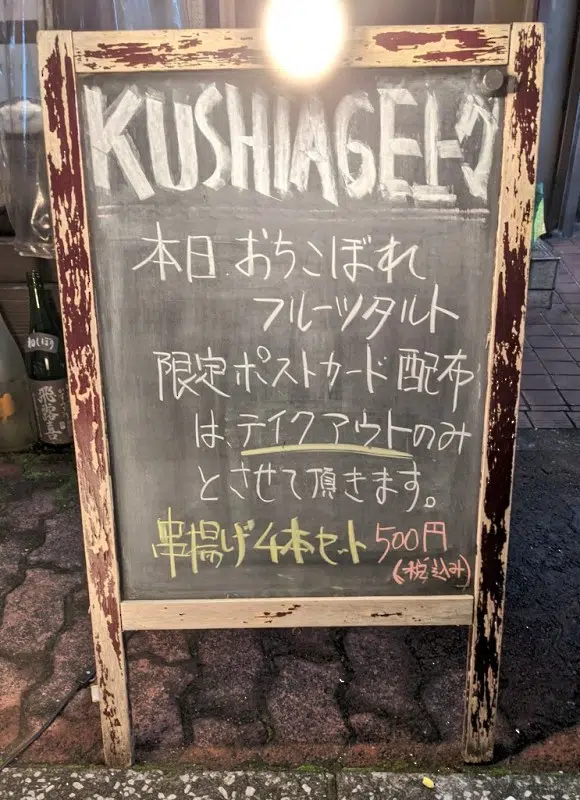 KUSHIAGEトク
本日 おちこぼれ
フルーツタルト
限定ポストカード配布
は、テイクアウトのみ
とさせて頂きます。
串揚げ4本セット 500円
(税込み)